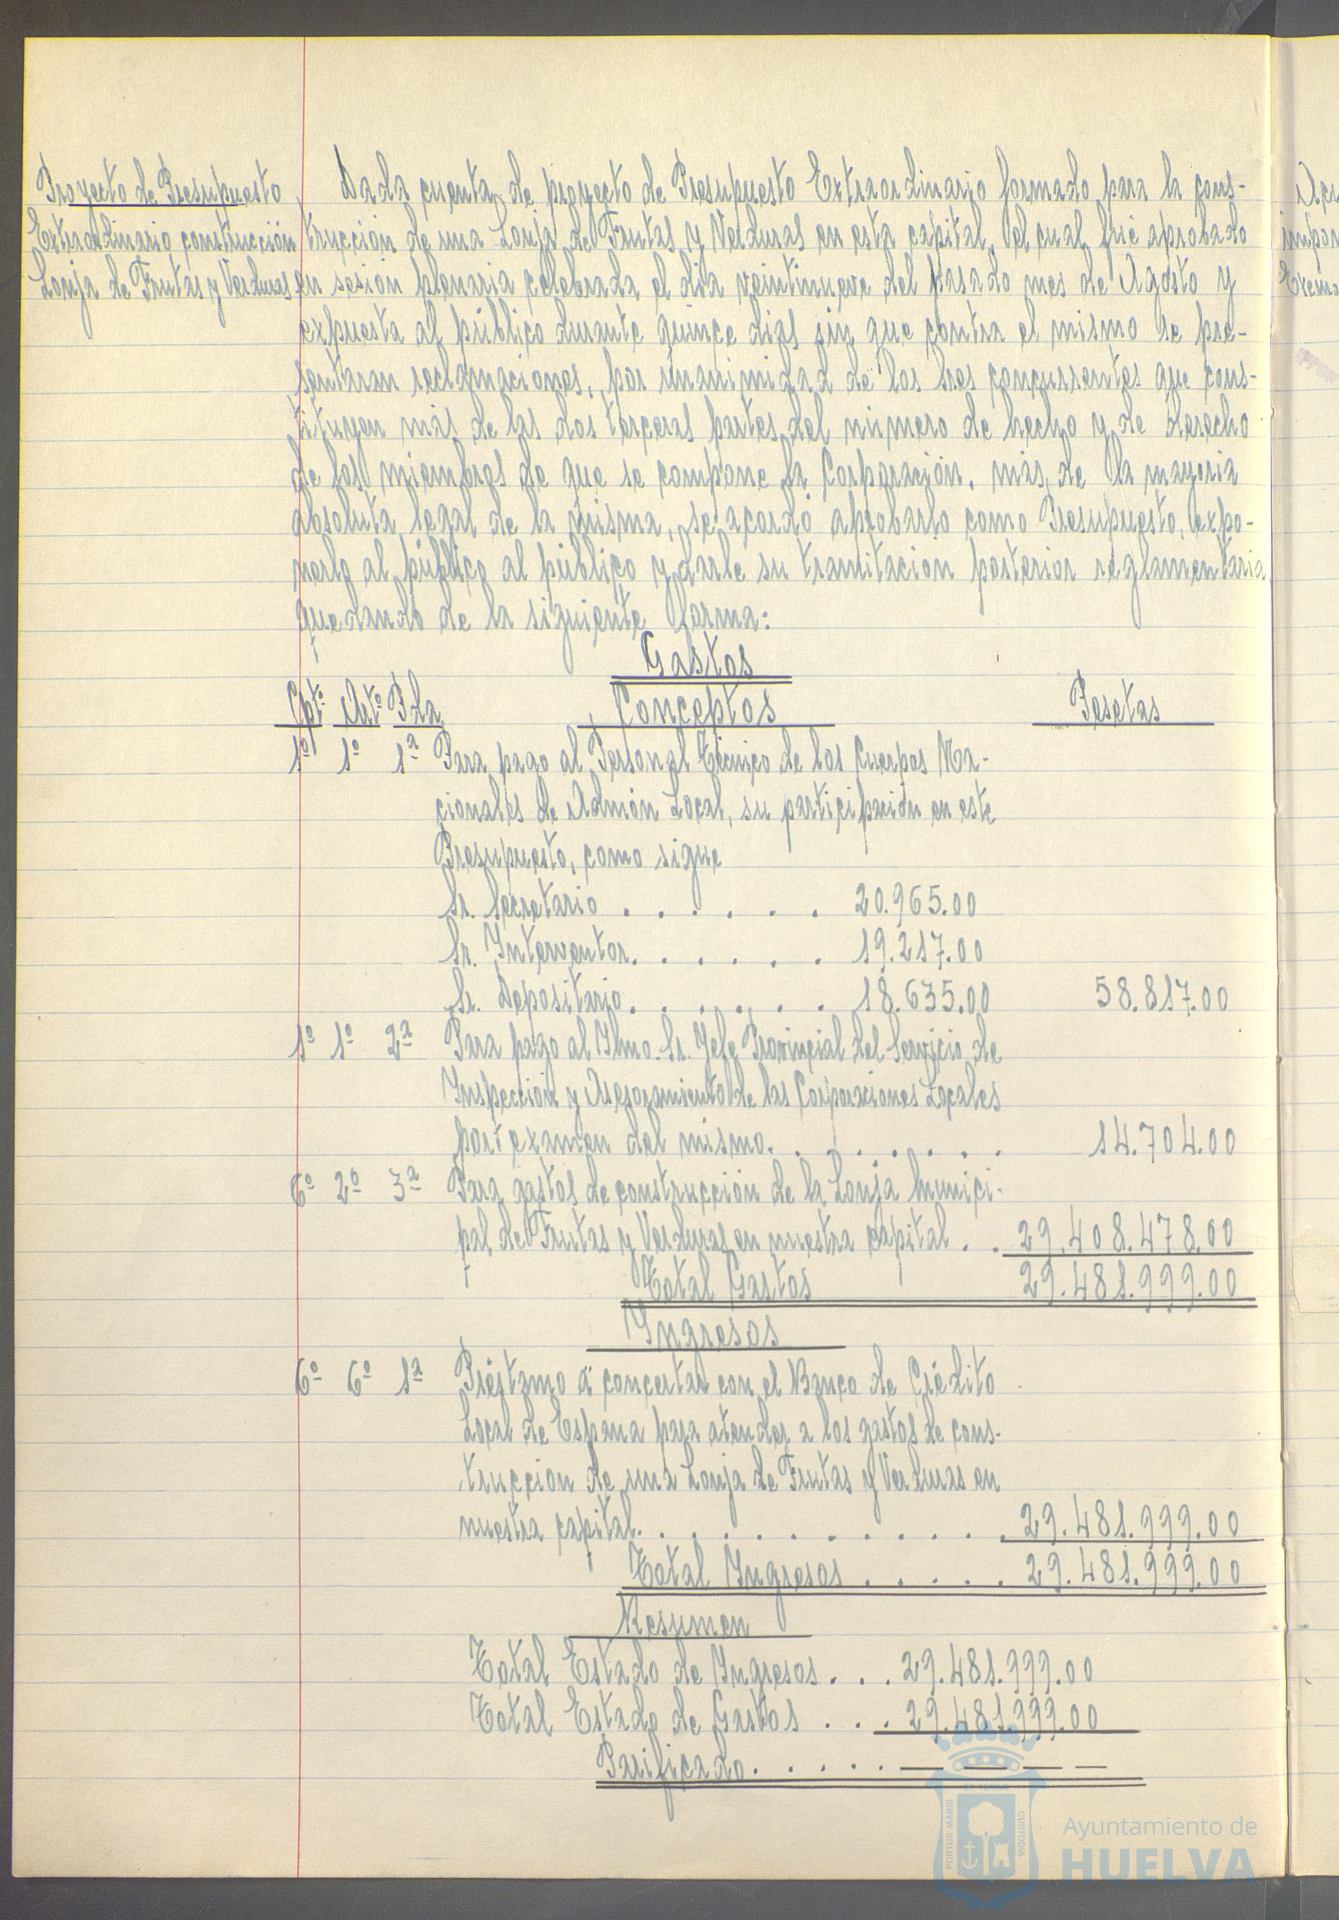 Proyecto de Presupuesto
Extraordinario construcción
Lonja de Frutas y Verduras
Dada cuenta de proyecto de Presupuesto Extraordinario formado para la cons-
trucción de una Lonja de Frutas y Verduras en esta capital, el cual fué aprobado
en sesión plenaria celebrada el dia veintinueve del pasado mes de Agosto y
expuesta al público durante quince dias sin que contra el mismo se pre-
sentaran reclamaciones, por unanimidad de los Sres concurrentes que cons-
tituyen más de las dos terceras partes del número de hecho y de derecho
de los miembros de que se compone la Corporación, más de la mayoria
absoluta legal de la misma, se acordó aprobarlo como Presupuesto, expo-
nerlo al público al público y darle su tramitación posterior reglamentaria
quedando de la siguiente forma:
Gastos
Cpt.º Art.º Pda Conceptos Pesetas
1º 1º 1ª Para pago al Personal Técnico de los Cuerpos Na-
cionales de Admón Local, su participación en este
Presupuesto, como sigue
Sr. Secretario . . . . . . 20.965.00
Sr. Interventor. . . . . . 19.217.00
Sr. Depositario. . . . . . 18.635.00 58.817.00
1º 1º 2ª Para pago al Ilmo. Sr. Jefe Provincial del Servicio de
Inspección y Asesoramiento de las Corporaciones Locales
por examen del mismo. . . . . . . . 14.704.00
6º 2º 3ª Para gastos de construcción de la Lonja Munici-
pal de Frutas y Verduras en nuestra capital . . 29.408.478.00
Total Gastos 29.481.999.00
Ingresos
6º 6º 1ª Préstamo a concertar con el Banco de Crédito
Local de España para atender a los gastos de cons-
trucción de una Lonja de Frutas y Verduras en
nuestra capital. . . . . . . . . . . . 29.481.999.00
Total Ingresos . . . . . 29.481.999.00
Resumen
Total Estado de Ingresos . . . 29.481.999.00
Total Estado de Gastos . . . 29.481.999.00
Panificado. . . . . . — — — —
PORTUS MARIS
CUSTODIA
Ayuntamiento de
HUELVA